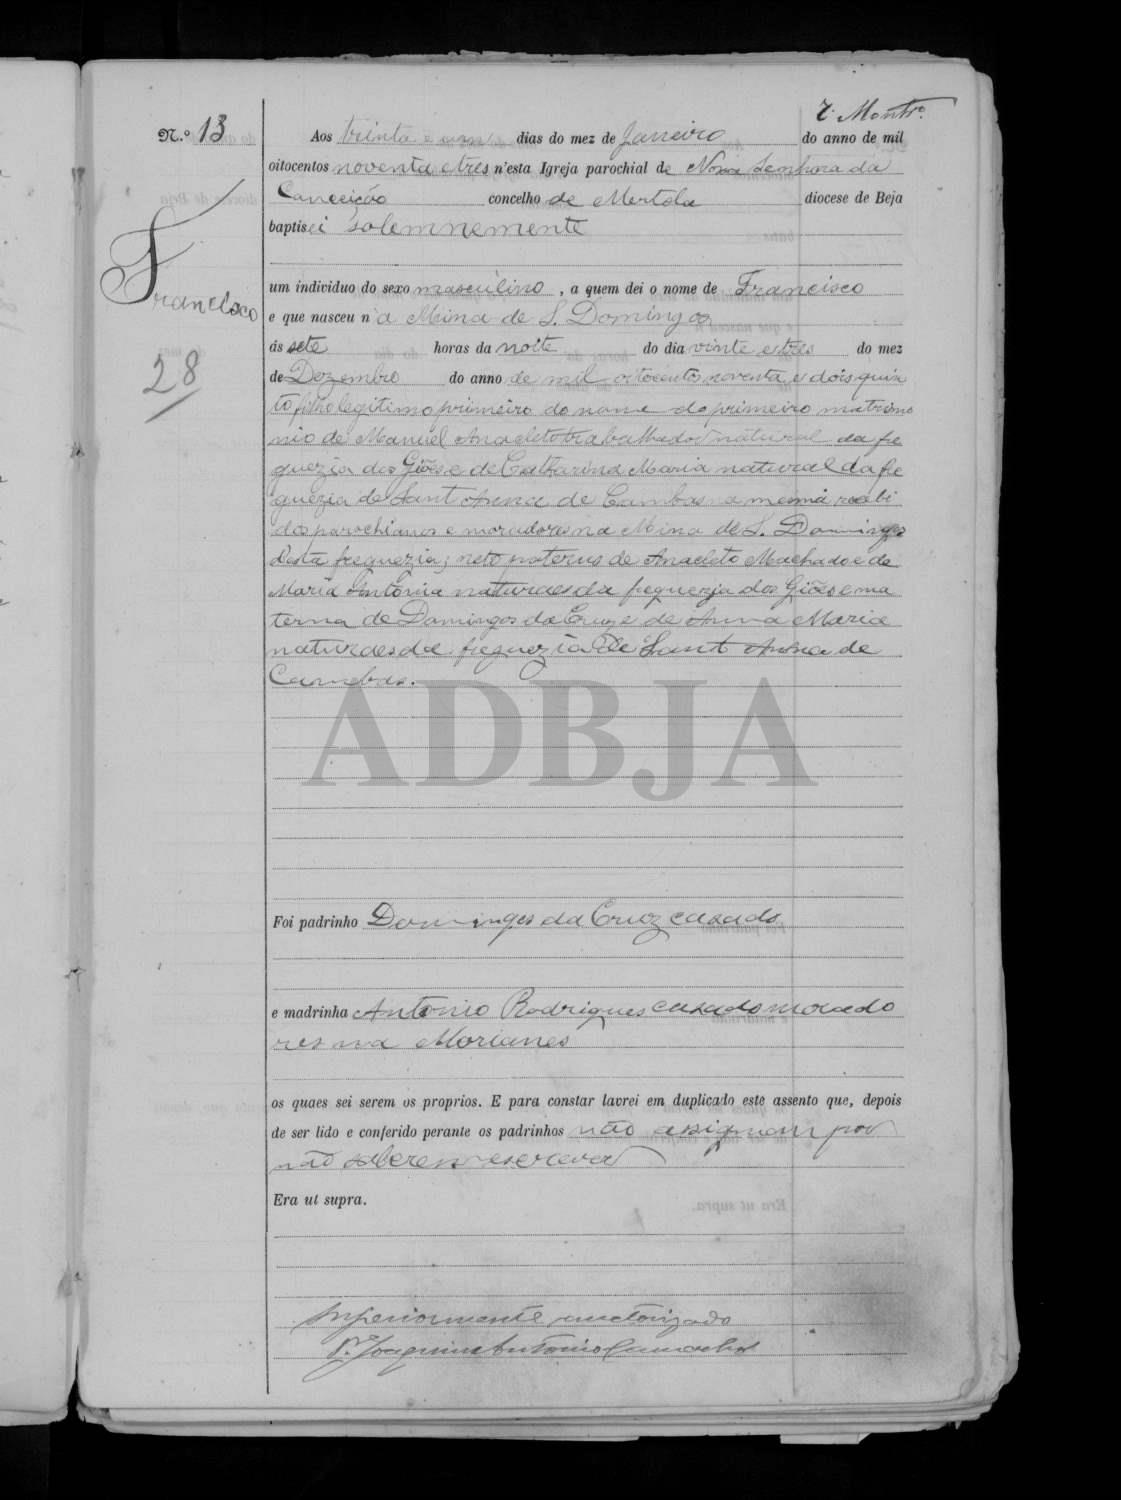 7. Montro.
N.o 13
Aos trinta e um dias do mez de Janeiro do anno de mil
oitocentos noventa e tres n'esta Igreja parochial de Nossa Senhora da
Conceição concelho de Mertola diocese de Beja
baptisei solemnemente
Francisco
um individuo do sexo masculino, a quem dei o nome de Francisco
e que nasceu na Mina de S. Domingos
ás sete horas da noite do dia vinte e tres do mez
28
de Dezembro do anno de mil oitocentos noventa e dois quin
to filho legitimo primeiro do nome do primeiro matrimo
nio de Manuel Anacleto trabalhador natural da fre
guezia dos Giões e de Catharina Maria natural da fre
guezia de Sant Anna de Cambas na mesma recebi
dos parochianos e moradores na Mina de S. Domingos
desta freguezia; neto paterno de Anacleto Machado e de
Maria Antonia naturaes da freguezia dos Giões e ma
terna de Domingos da Cruz e de Anna Maria
naturaes da freguezia de Sant Anna de
Cambas.
ADBJA
Foi padrinho Domingos da Cruz casado
e madrinha Antonio Rodrigues casado morado
res na Morianes
os quaes sei serem os proprios. E para constar lavrei em duplicado este assento que, depois
de ser lido e conferido perante os padrinhos não assignam por
não saberem escrever
Era ut supra.
Superiormente auctorizado
P.e Joaquim Antonio Camacho